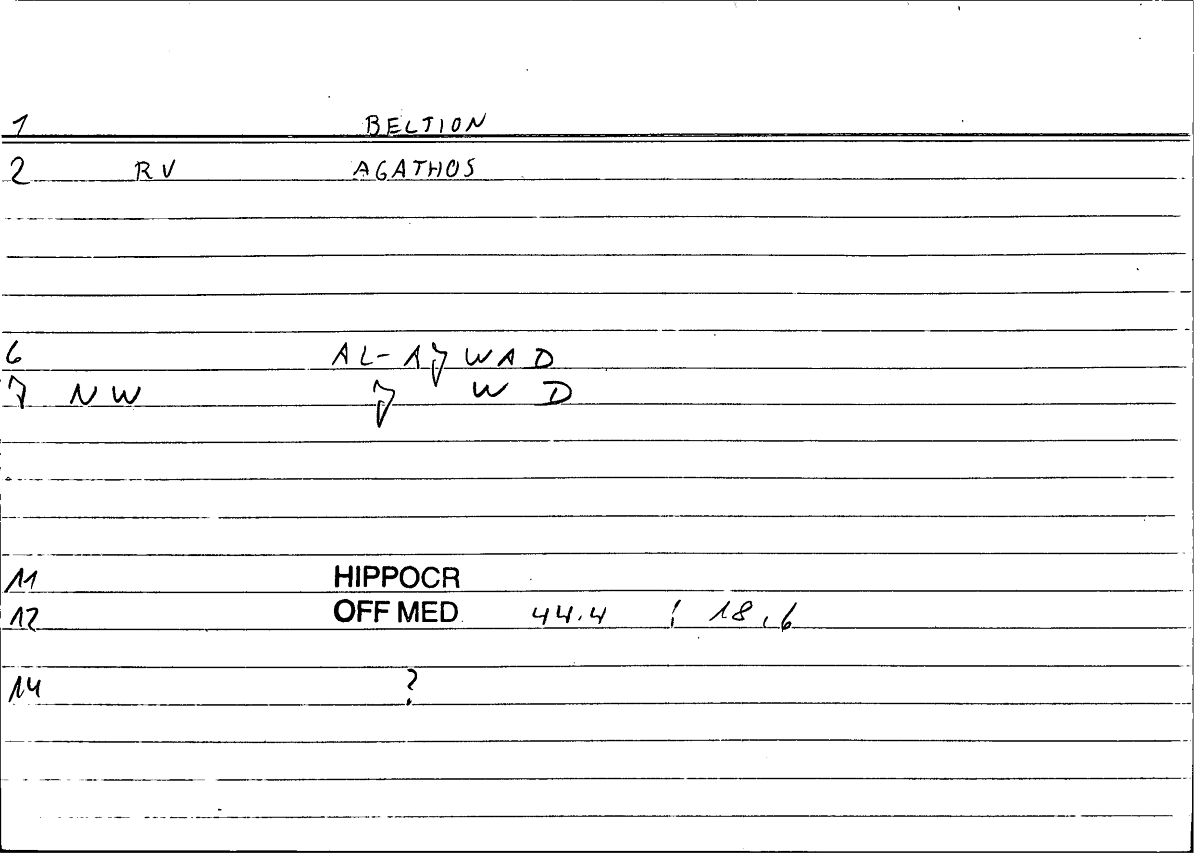 1 BELTION
2 RV AGATHOS
6 AL-AWAD
7 NW W D
11 HIPPOCR
12 OFF MED 44.4 ; 18,6
14 ?